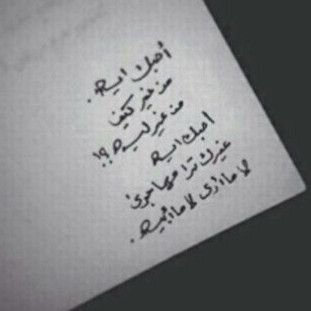 أحبك ايه .
من غير كيف
من غير ليه ؟!
احبك ايه
غيرك ترا مهما جرى
لا ماأرى لا ماأبيه .